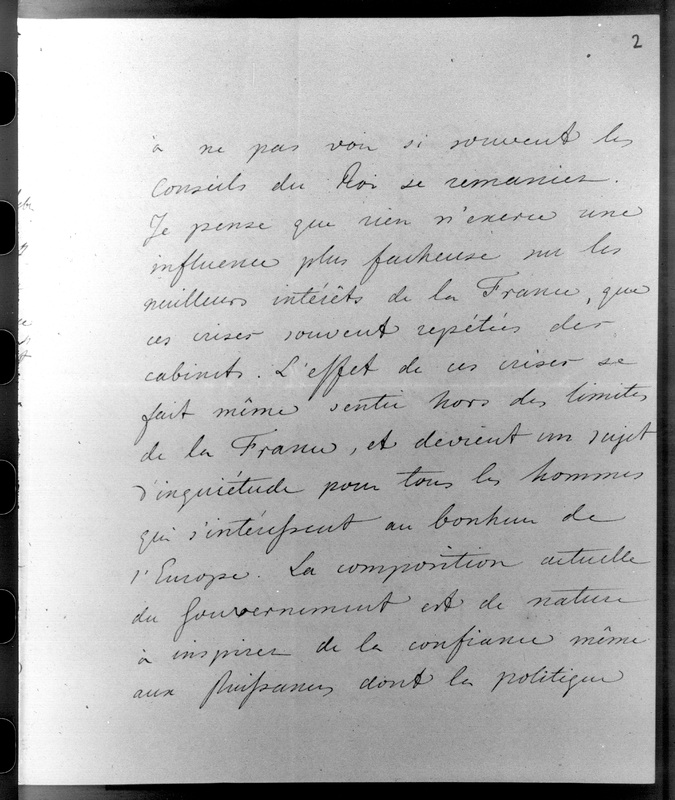 2
à ne pas voir si souvent les
Conseils du Roi se remanier.
Je pense que rien n'exerce une
influence plus facheuse sur les
meilleurs intérêts de la France, que
ces crises souvent repétées des
cabinets. L'effet de ces crises se
fait même sentir hors des limites
de la France, et devient un sujet
d'inquiétude pour tous les hommes
qui s'intéressent au bonheur de
l'Europe. La composition actuelle
du Gouvernement est de nature
à inspirer de la confiance même
aux Puissances dont la politique